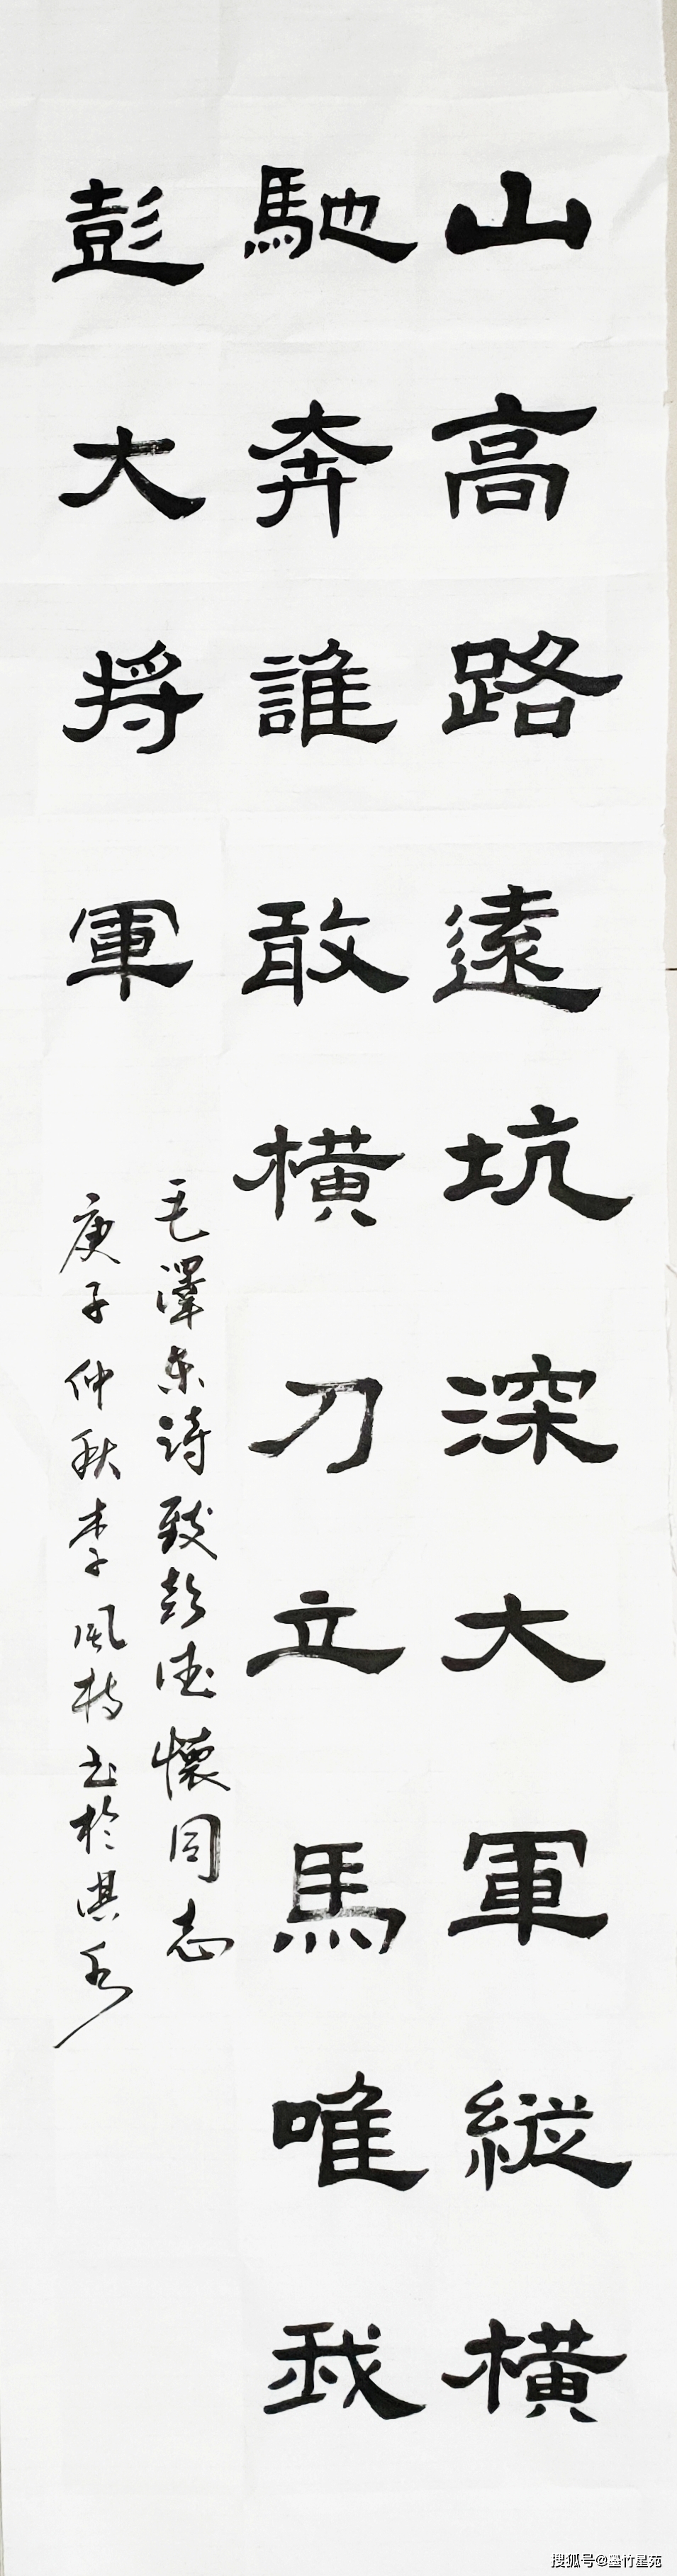 山高路遠坑深大軍縱橫
馳奔誰敢橫刀立馬唯我
彭大將軍
毛澤东诗致彭德懷同志
庚子仲秋李風梅书於淇水
搜狐号@墨竹星苑